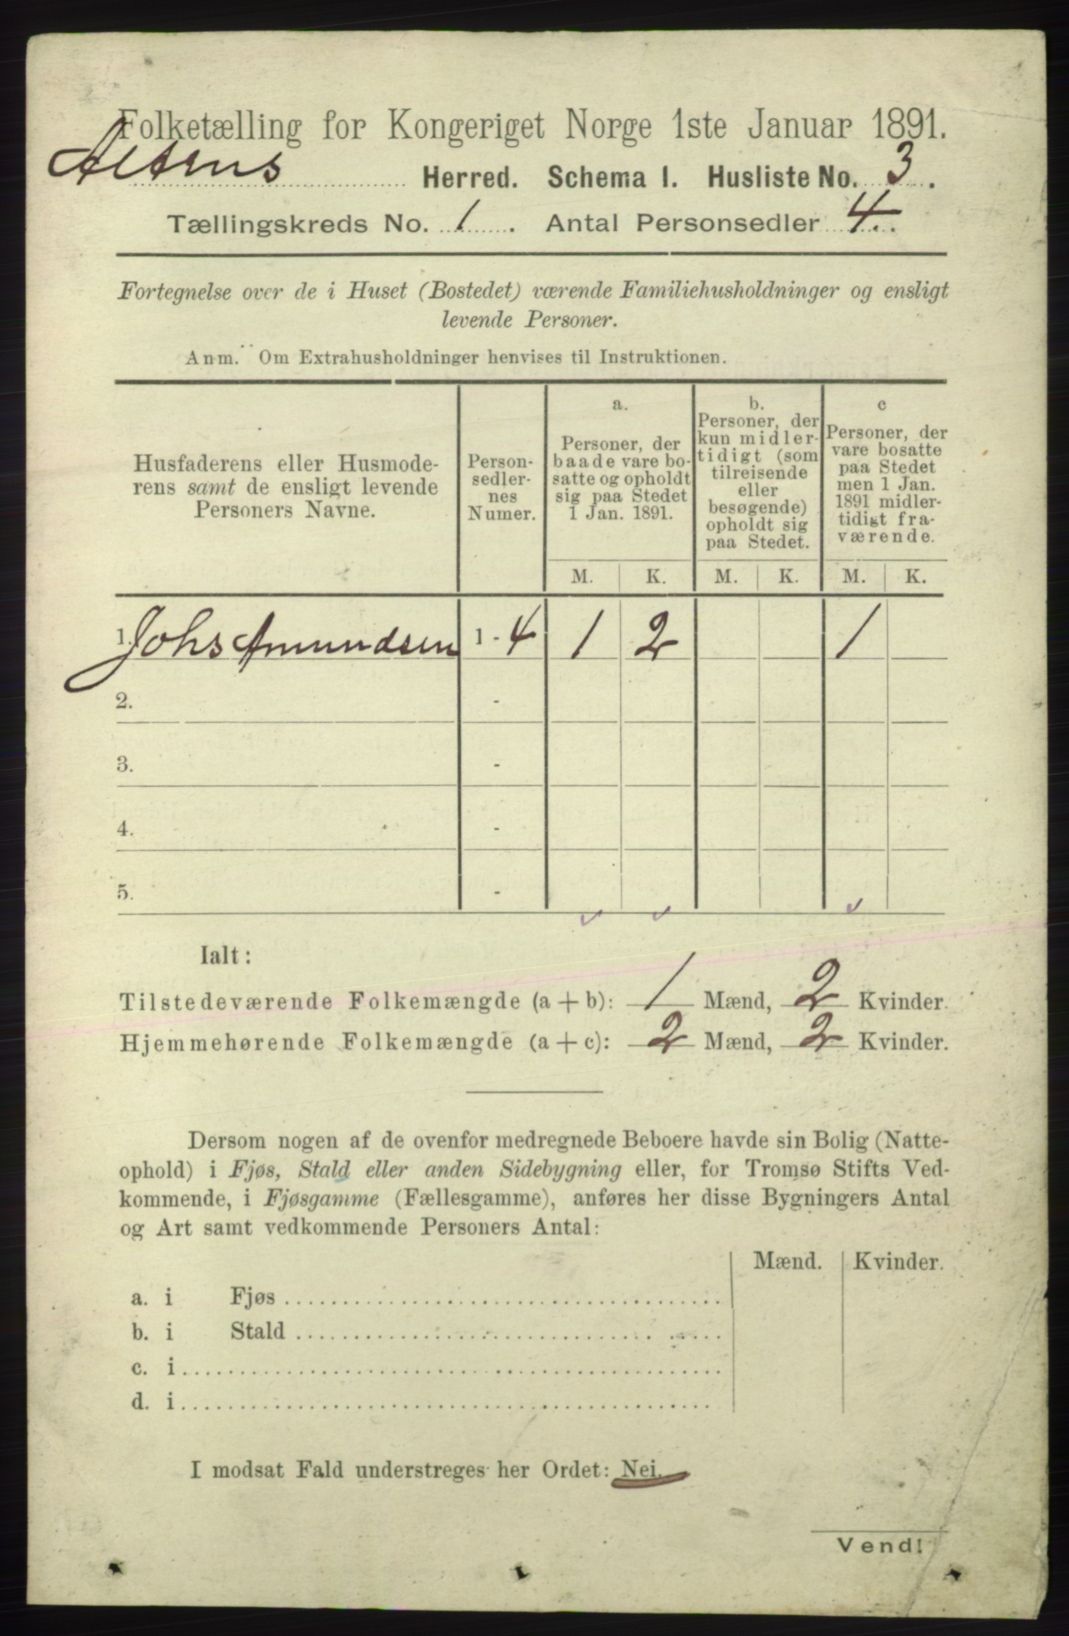 Folketælling for Kongeriget Norge 1ste Januar 1891.
Altens Herred. Schema I. Husliste No. 3.
Tællingskreds No. 1. Antal Personsedler 4.
Fortegnelse over de i Huset (Bostedet) værende Familiehusholdninger og ensligt
levende Personer.
Anm. Om Extrahusholdninger henvises til Instruktionen.
Husfaderens eller Husmode-
rens samt de ensligt levende
Personers Navne.
Person-
sedler-
nes
Numer.
a.
Personer, der
baade vare bo-
satte og opholdt
sig paa Stedet
1 Jan. 1891.
b.
Personer, der
kun midler-
tidigt (som
tilreisende
eller
besøgende)
opholdt sig
paa Stedet.
c
Personer, der
vare bosatte
paa Stedet
men 1 Jan.
1891 midler-
tidigt fra-
værende.
M. K. M. K. M. K.
1. Johs Amundsen 1 - 4 1 2 1
2. -
3. -
4. -
5. -
Ialt:
Tilstedeværende Folkemængde (a + b): 1 Mænd, 2 Kvinder.
Hjemmehørende Folkemængde (a + c): 2 Mænd, 2 Kvinder.
Dersom nogen af de ovenfor medregnede Beboere havde sin Bolig (Natte-
ophold) i Fjøs, Stald eller anden Sidebygning eller, for Tromsø Stifts Ved-
kommende, i Fjøsgamme (Fællesgamme), anføres her disse Bygningers Antal
og Art samt vedkommende Personers Antal:
Mænd. Kvinder.
a. i Fjøs
b. i Stald
c. i
d. i
I modsat Fald understreges her Ordet: Nei.
Vend!